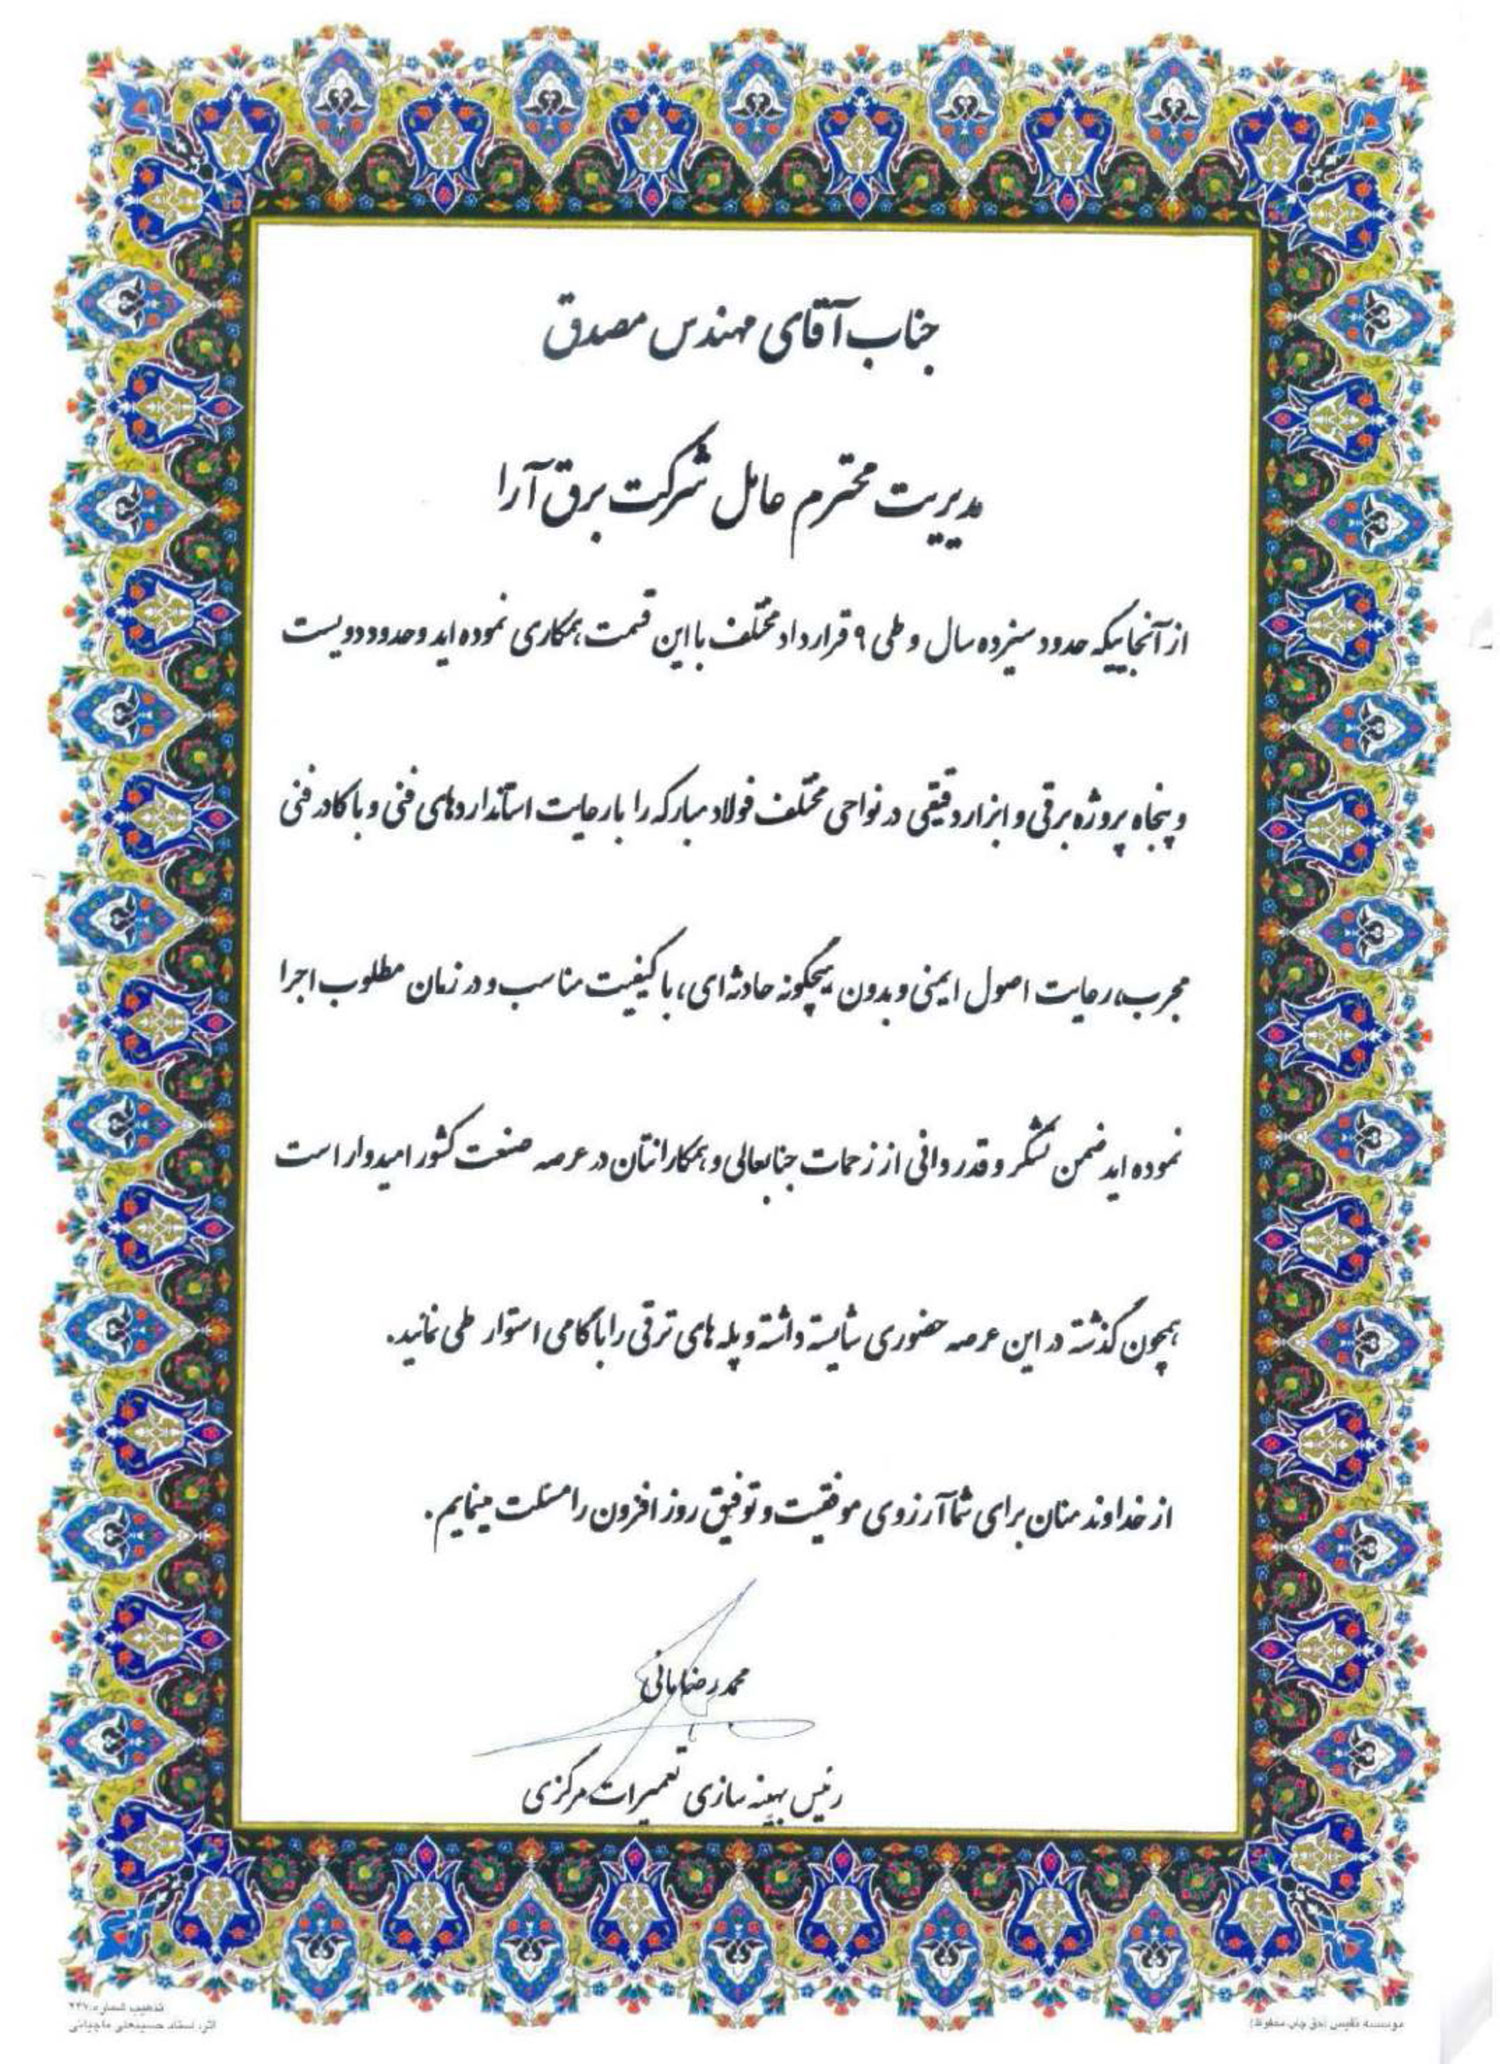 جناب آقای مهندس مصدق
مدیریت محترم عامل شرکت برق آرا
از آنجاییکه حدود سیزده سال و طی ۹ قرارداد مختلف با این قسمت همکاری نموده اید و حدود دویست
و پنجاه پروژه برقی و ابزاردقیقی در نواحی مختلف فولاد مبارکه را با رعایت استانداردهای فنی و با کادر فنی
مجرب، رعایت اصول ایمنی و بدون هیچگونه حادثه ای، با کیفیت مناسب و در زمان مطلوب اجرا
نموده اید ضمن تشکر و قدردانی از زحمات جنابعالی و همکارانتان در عرصه صنعت کشور امیدوار است
همچون گذشته در این عرصه حضوری شایسته داشته و پله های ترقی را با گامی استوار طی نمائید.
از خداوند منان برای شما آرزوی موفقیت و توفیق روز افزون را مسئلت مینمایم.
محمدرضا مانی
رئیس بهینه سازی تعمیرات مرکزی
موسسه نفیس (حق چاپ محفوظ)
تذهیب شماره: ۲۴۷
اثر: استاد حسینعلی ماچیانی